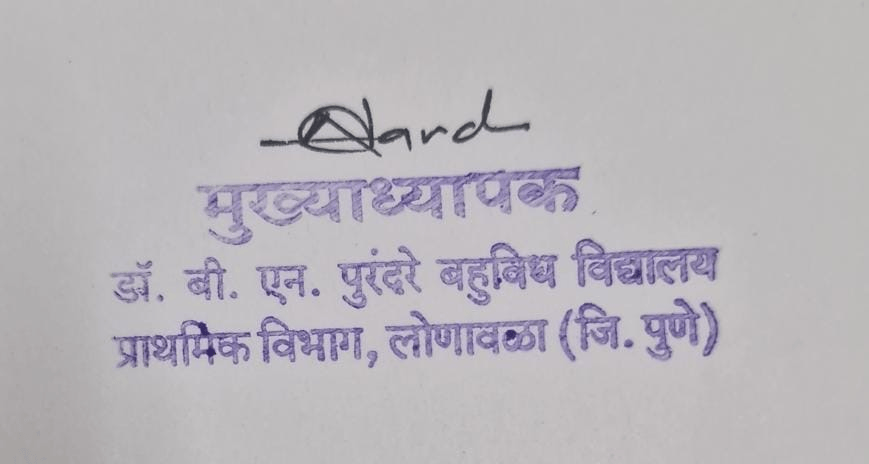 मुख्याध्यापक
डॉ. बी. एन. पुरंदरे बहुविध विद्यालय
प्राथमिक विभाग, लोणावळा (जि. पुणे)